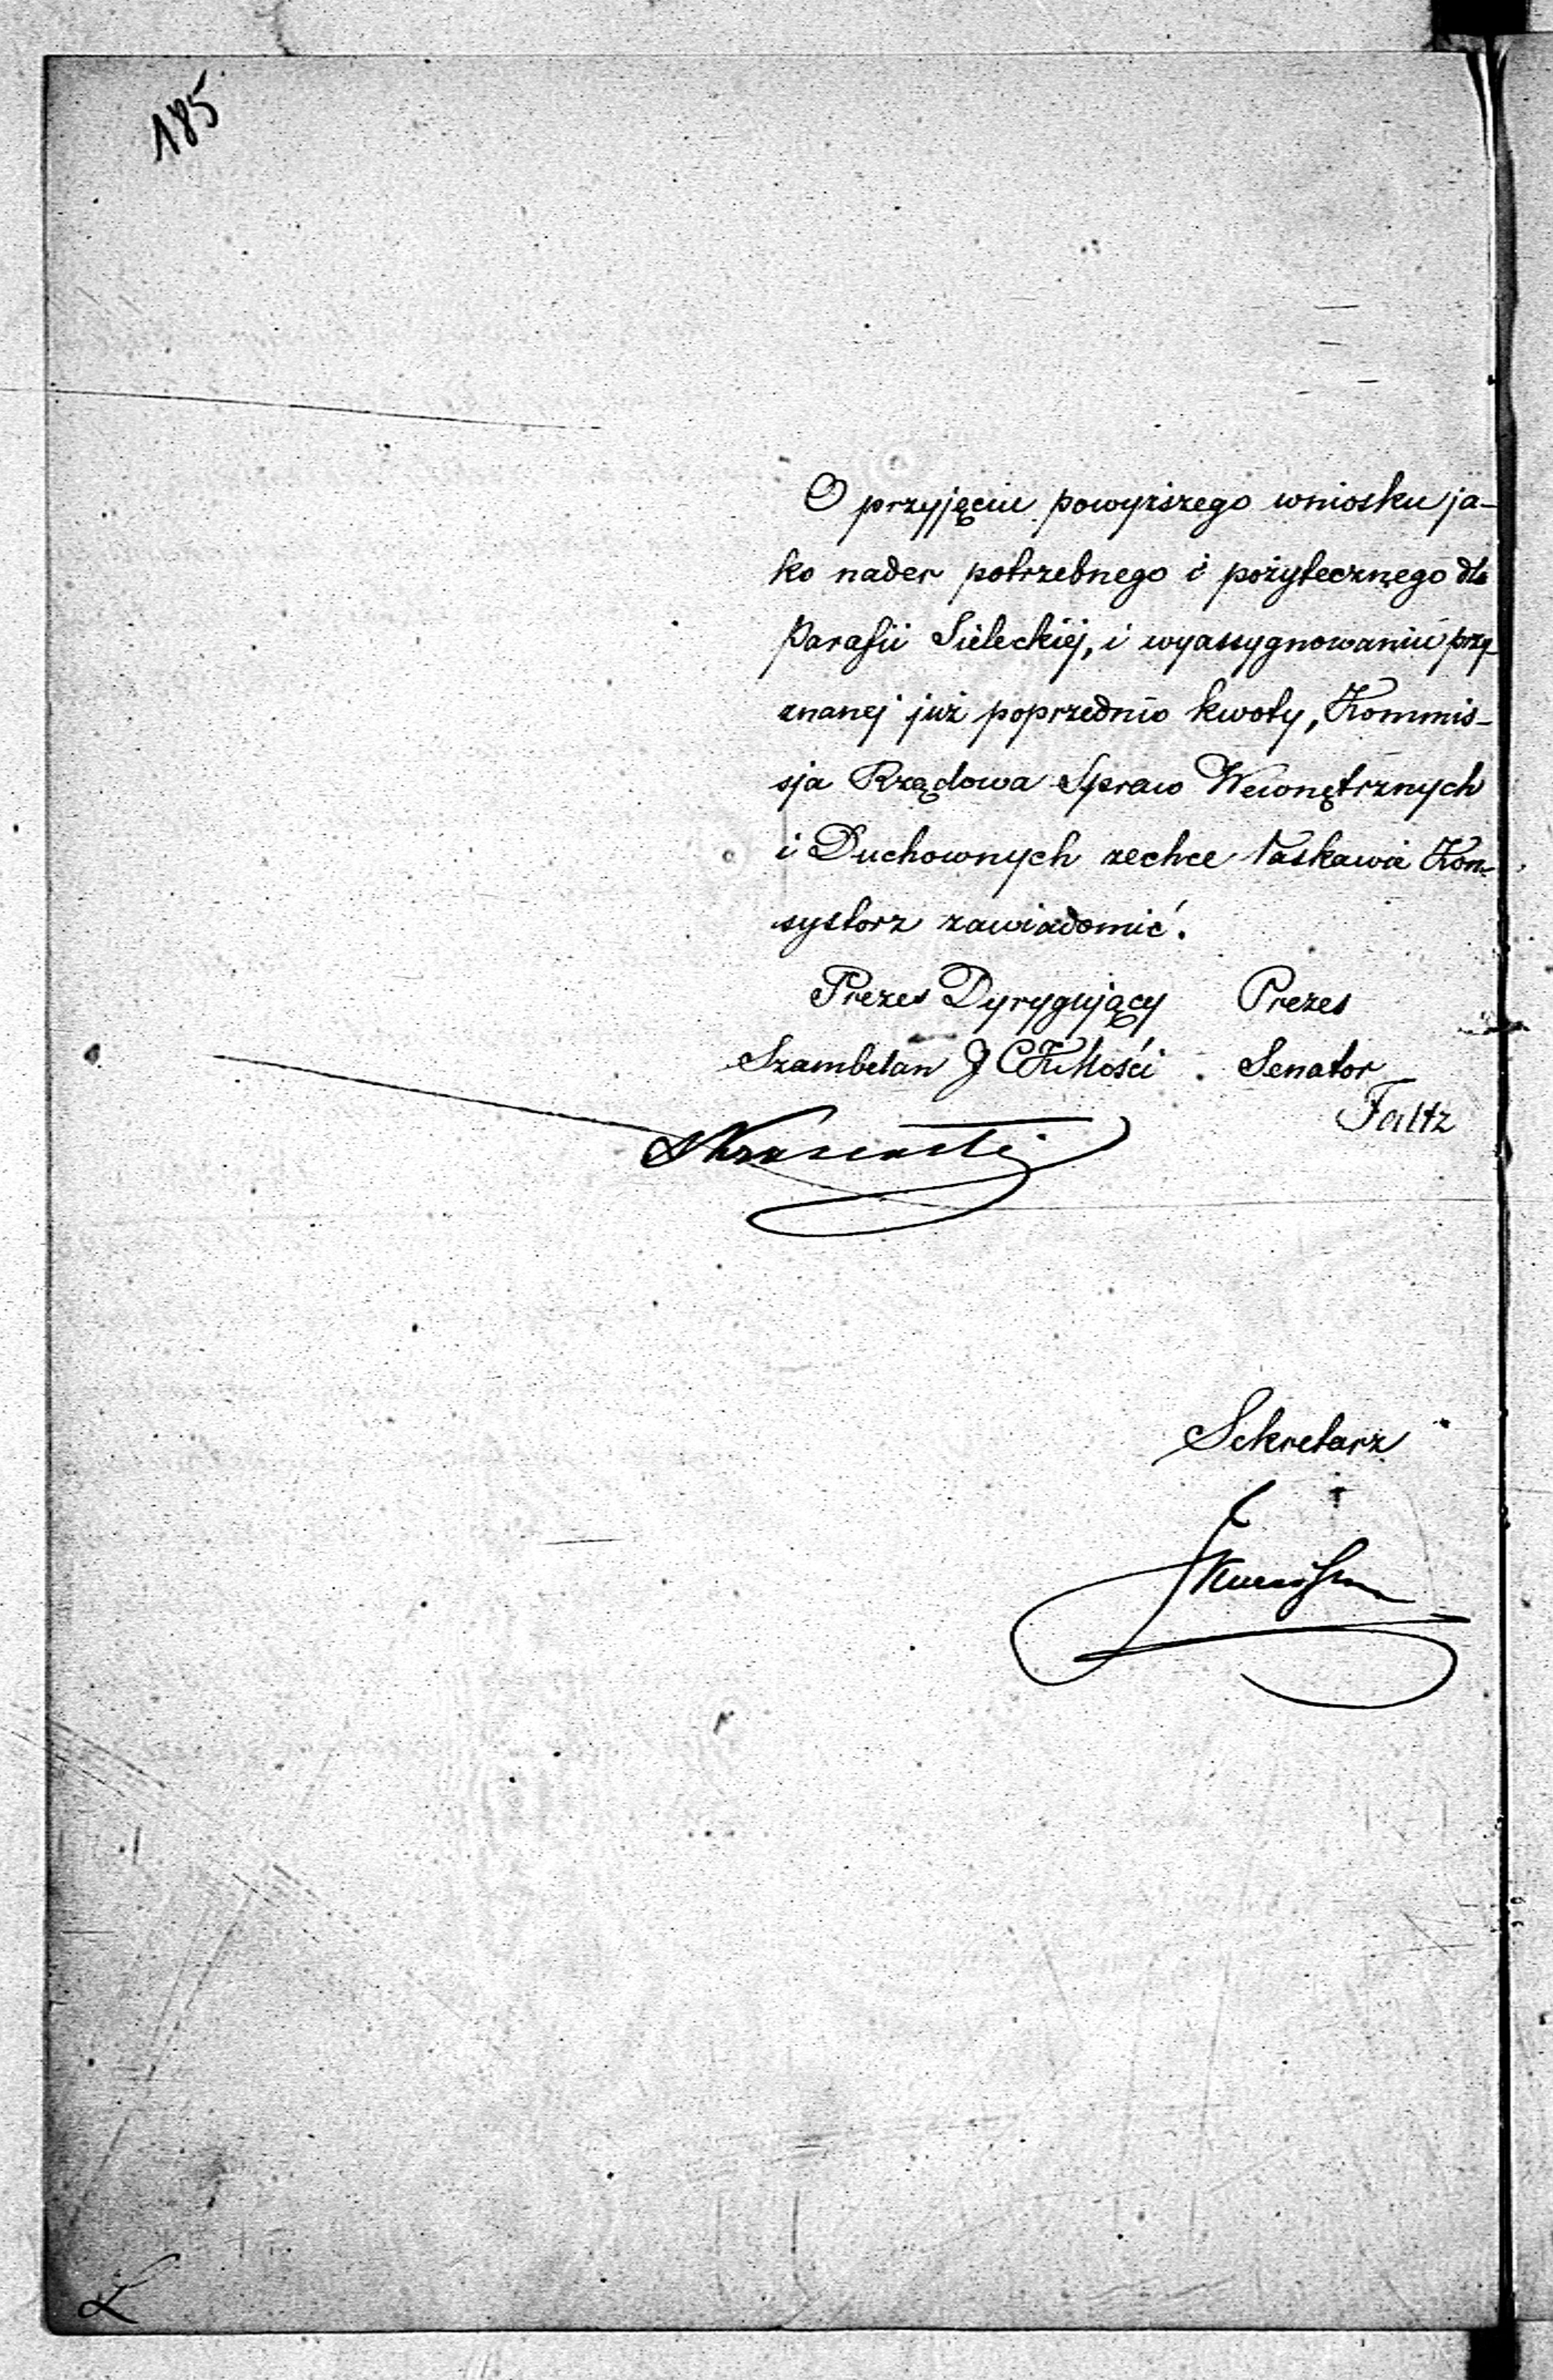 185
O przyjęciu powyższego wniosku ja-
ko nader potrzebnego i pożytecznego dla
Parafii Sieleckiéj, i wyassygnowaniu przy-
znanej już poprzednio kwoty, Kommis-
sja Rządowa Spraw Wewnętrznych
i Duchownych zechce łaskawie Kon-
systorz zawiadomić.
Prezes Dyrygujący Prezes
Szambelan J C K Mości Senator
Faltz
Sekretarz
L